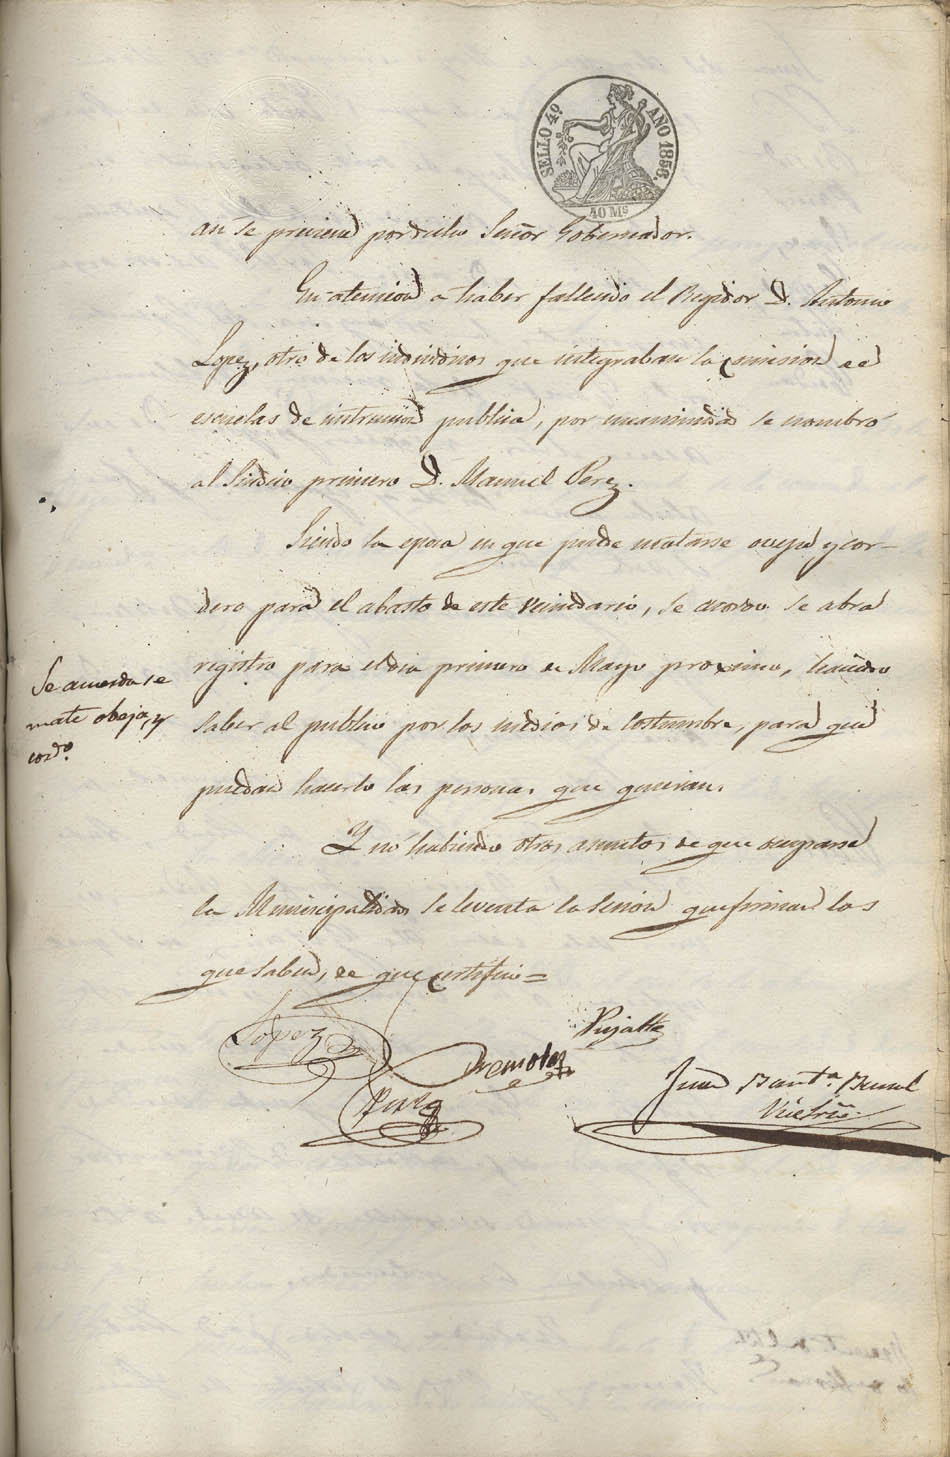 SELLO 4º AÑO 1856.
40 Ms
se previene por dicho Señor Gobernador.
En atencion á haber fallecido el Regidor D. Antonio
Lopez, otro de los individuos que integraban la comision de
escuelas de instruccion publica, por unanimidad se nombró
al Sindico primero D. Manuel Perez.
Siendo la epoca en que puede matarse oveja y cor-
dero para el abasto de este vecindario, se acordo se abra
registro para el dia primero de Mayo proximo, haciendo
saber al publico por los medios de costumbre, para que
puedan hacerlo las personas que quieran.
Se acuerda se
mate obeja, y
cordº.
Y no habiendo otros asuntos de que ocuparse
la Municipalidad se levanta la sesion que firman los
que saben, de que certifico=
Lopez
Pujalte
Juan Bautª Bernal